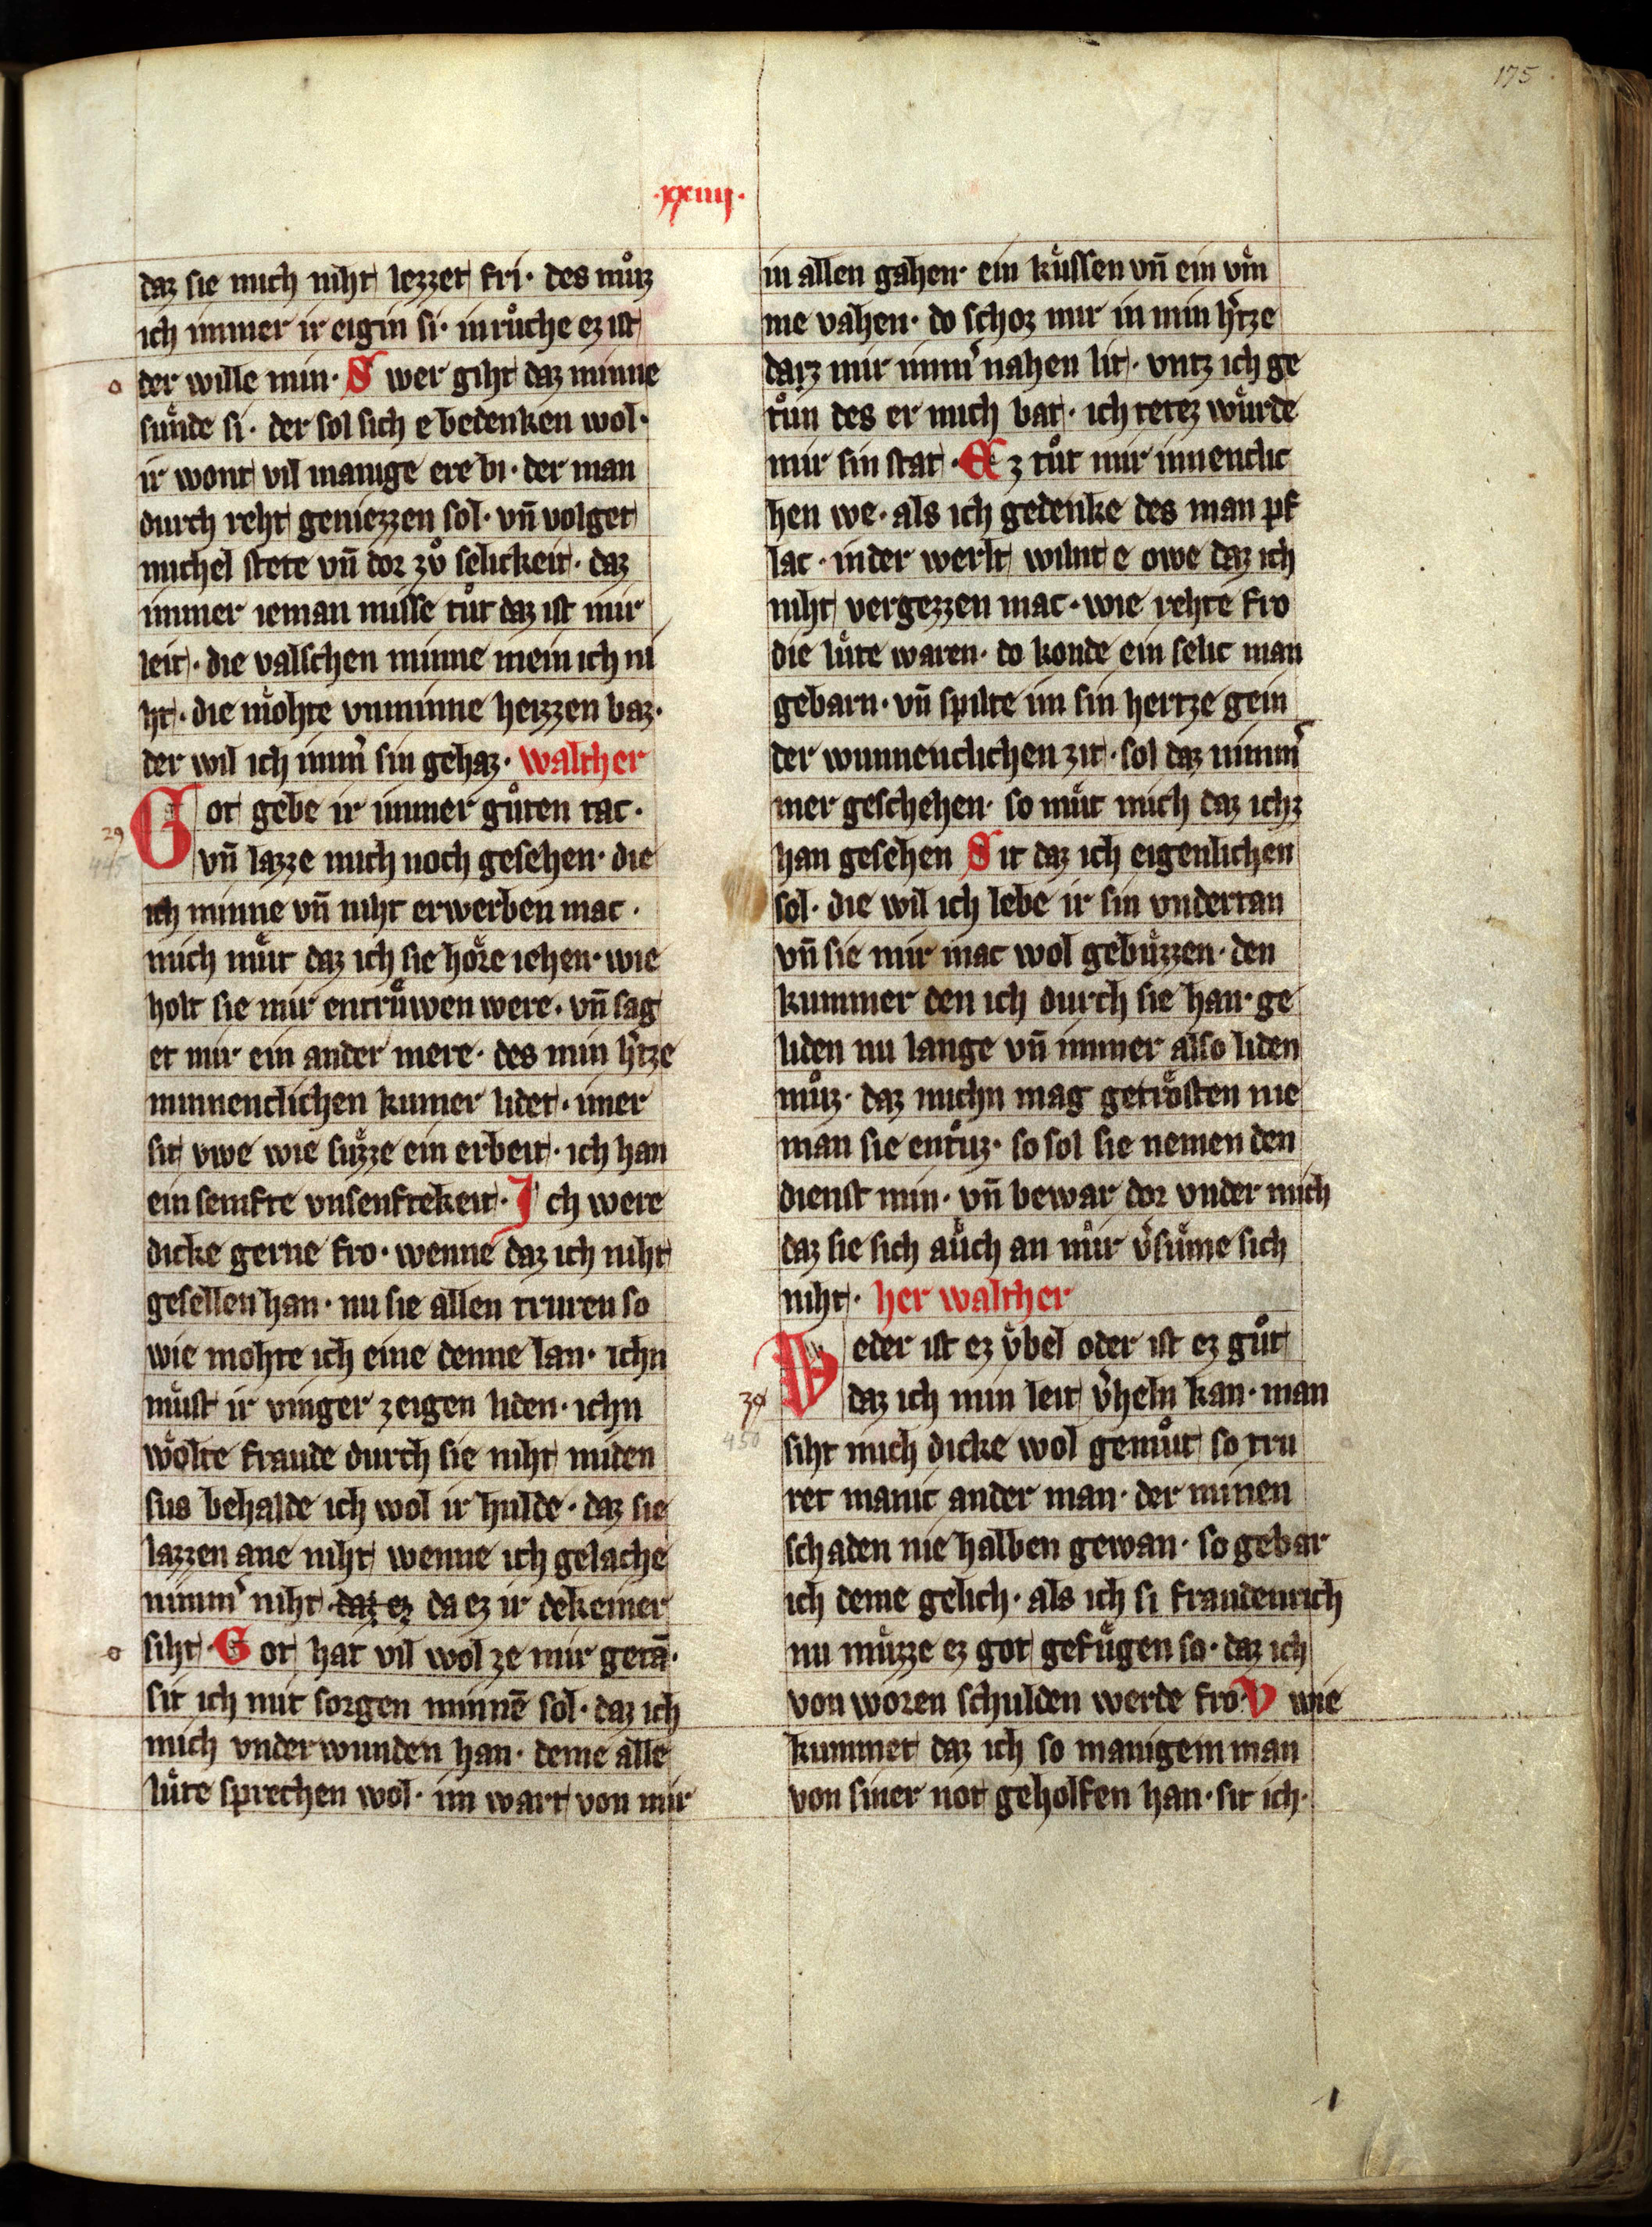 175
·xxiiii·
daz sie mich niht lezzet fri· des muͦz
ich immer ir eigin si· inruͦche ez ist
der wille min· S wer giht daz minne
suͤnde si· der sol sich e bedenken wol·
ir wont vil manige ere bi· der man
durch reht geniezzen sol· vn̄ volget
michel stete vn̄ dor zvͦ selickeit· daz
immer ieman misse tuͦt daz ist mir
leit· die valschen minne mein ich ni
ht· die moͤhte vnminne heizzen baz·
der wil ich imm̉ sin gehaz· walther
Got gebe ir immer guͦten tac·
vn̄ lazze mich noch gesehen· die
ich minne vn̄ niht erwerben mac·
mich muͤt daz ich sie hoͤre iehen· wie
holt sie mir entruͤwen were· vn̄ sag
et mir ein ander mere· des min h̉tze
minnenclichen kumer lidet· imer
sit vwe wie suͤzze ein erbeit· ich han
ein semfte vnsenftekeit· J ch were
dicke gerne fro· wenne daz ich niht
gesellen han· nu sie allen truren so
wie mohte ich eine denne lan· ichn
muͤst ir vinger zeigen liden· ichn
woͤlte fraude durch sie niht miden
sus behalde ich wol ir hulde· daz sie
lazzen ane niht wenne ich gelache
nimm̉ niht daz ez da ez ir dekeiner
siht· G ot hat vil wol ze mir getā·
sit ich mit sorgen minnē sol· daz ich
mich vnderwunden han· deme alle
luͤte sprechen wol· im wart von mir
in allen gahen· ein kuͤssen vn̄ ein vm̄
me vahen· do schoz mir in min h̉tze
darz mir imm̉ nahen lit· vntz ich ge
tuͦn des er mich bat· ich tetez wuͤrde
mir sin stat· E z tuͦt mir innenclic
hen we· als ich gedenke des man pf
lac· in der werlt wilnt e owe daz ich
niht vergezzen mac· wie rehte fro
die luͤte waren· do konde ein selic man
gebarn· vn̄ spilte im sin hertze gein
der wunnenclichen zit· sol daz nimm̉
mer geschehen· so muͤt mich daz ichz
han gesehen S it daz ich eigenlichen
sol· die wil ich lebe ir sin vndertan
vn̄ sie mir mac wol gebuͤzzen· den
kummer den ich durch sie han· ge
liden nu lange vn̄ immer also liden
muͦz· daz michn mag getroͤsten nie
man sie entuͦz· so sol sie nemen den
dienst min· vn̄ bewar dor vnder mich
daz sie sich auͤch an mir v̉suͤme sich
niht· her walther
Weder ist ez vͤbel oder ist ez guͦt
daz ich min leit v̉heln kan· man
siht mich dicke wol gemuͦt so tru
ret manic ander man· der minen
schaden nie halben gewan· so gebar
ich deme gelich· als ich si fraudenrich
nu muͤzze ez got gefuͤgen so· daz ich
von woren schulden werde fro· V wie
kummet daz ich so manigem man
von siner not geholfen han· sit ich·
29
445
30
450